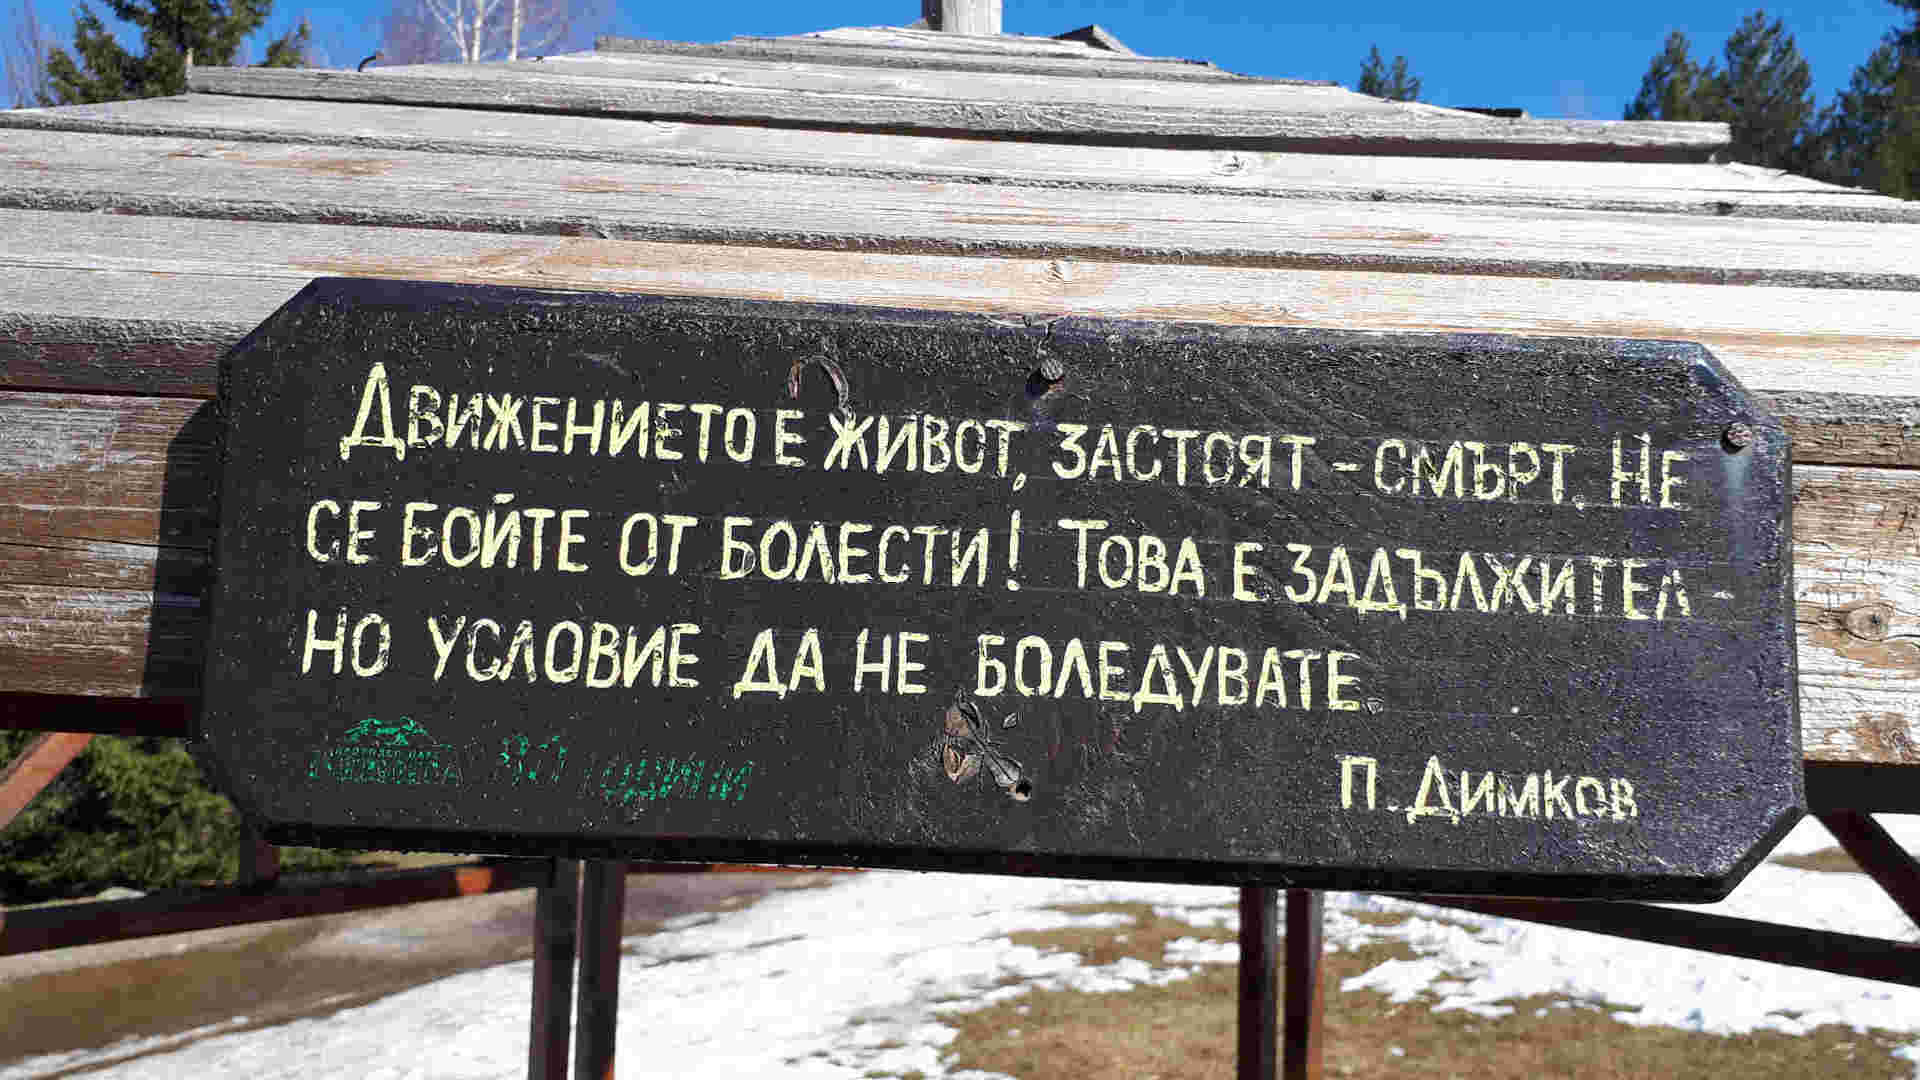 Движението е живот, застоят - смърт. Не
се бойте от болести! Това е задължител-
но условие да не боледувате.
80 години
П. Димков